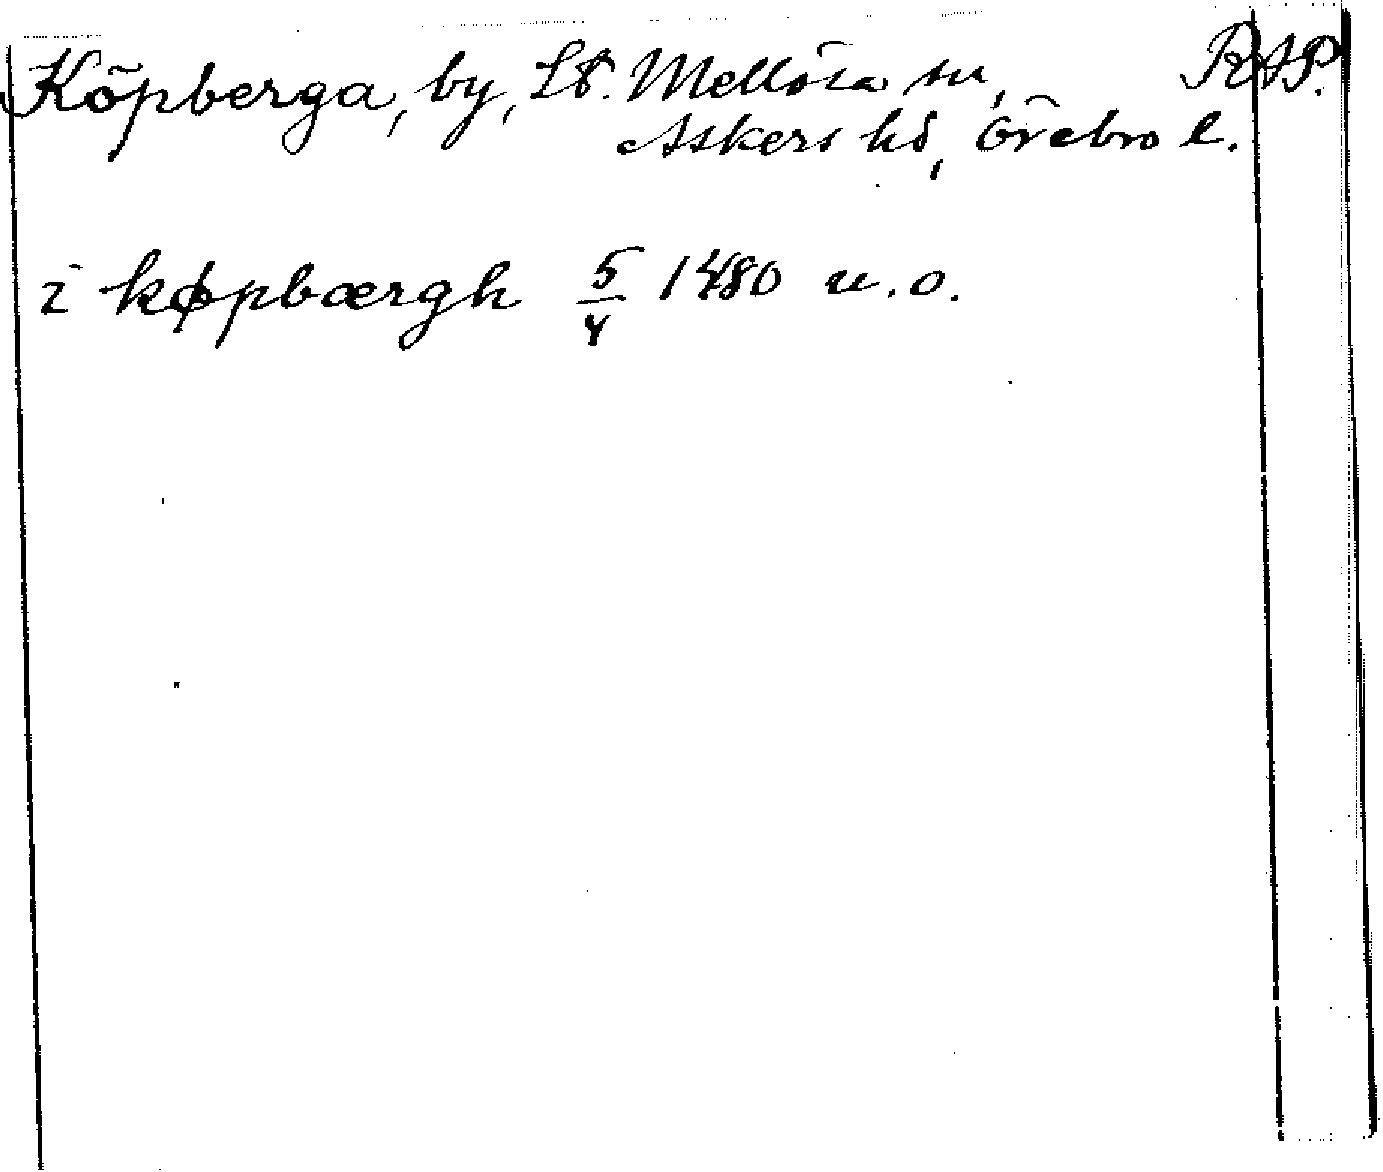 Köpberga, by, St. Mellösa sn, RAP.
Askers hd, Örebro l.
i køpbærgh 5/4 1480 u.o.